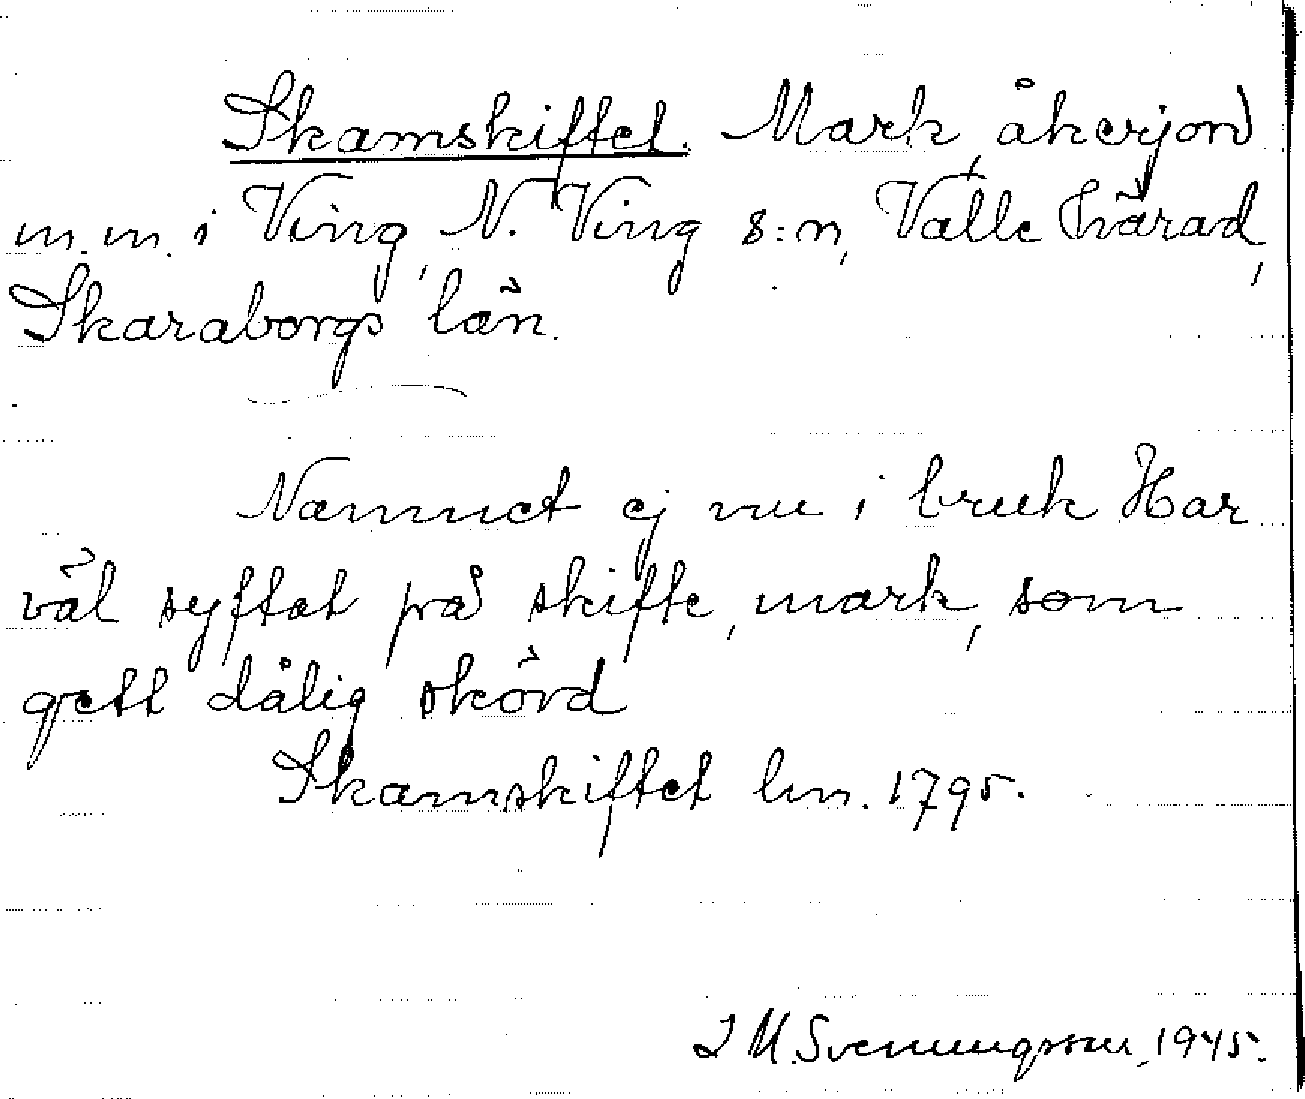 Skamskiftet. Mark, åkerjord
m.m. i Ving, N. Ving s:n, Valle härad,
Skaraborgs län.
Namnet ej nu i bruk Har
väl syftat på skifte, mark, som
gett dålig skörd
Skamskiftet lm. 1795.
I M. Svenungsson, 1945.